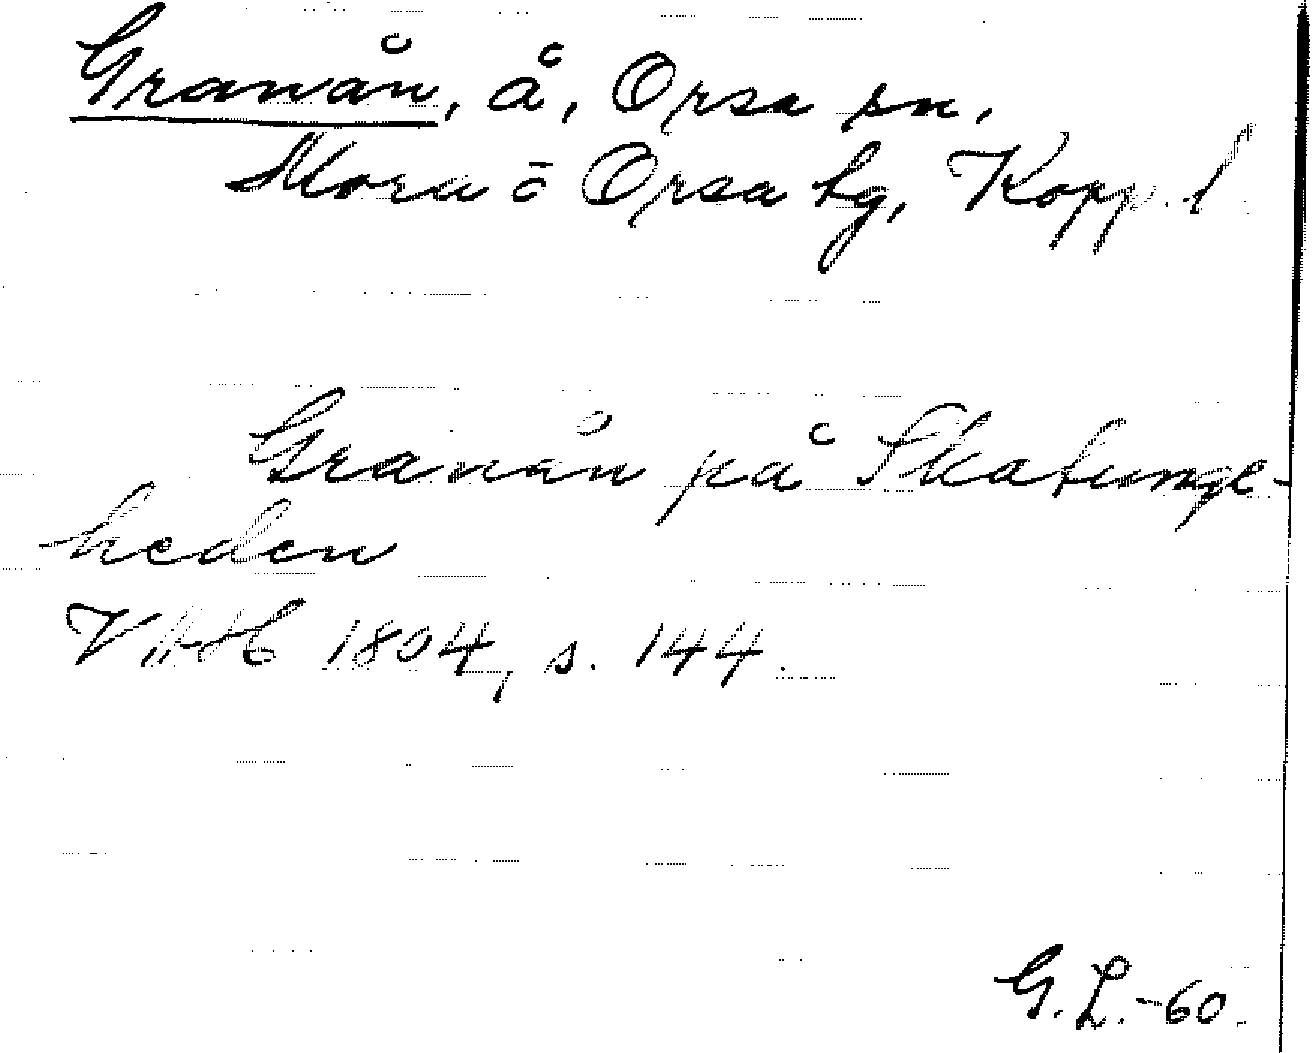 Granån, å, Orsa sn,
Mora o Orsa hg, Kopp. l
Granån på Skatunge-
heden
VAH 1804, s. 144.
G. L. -60.